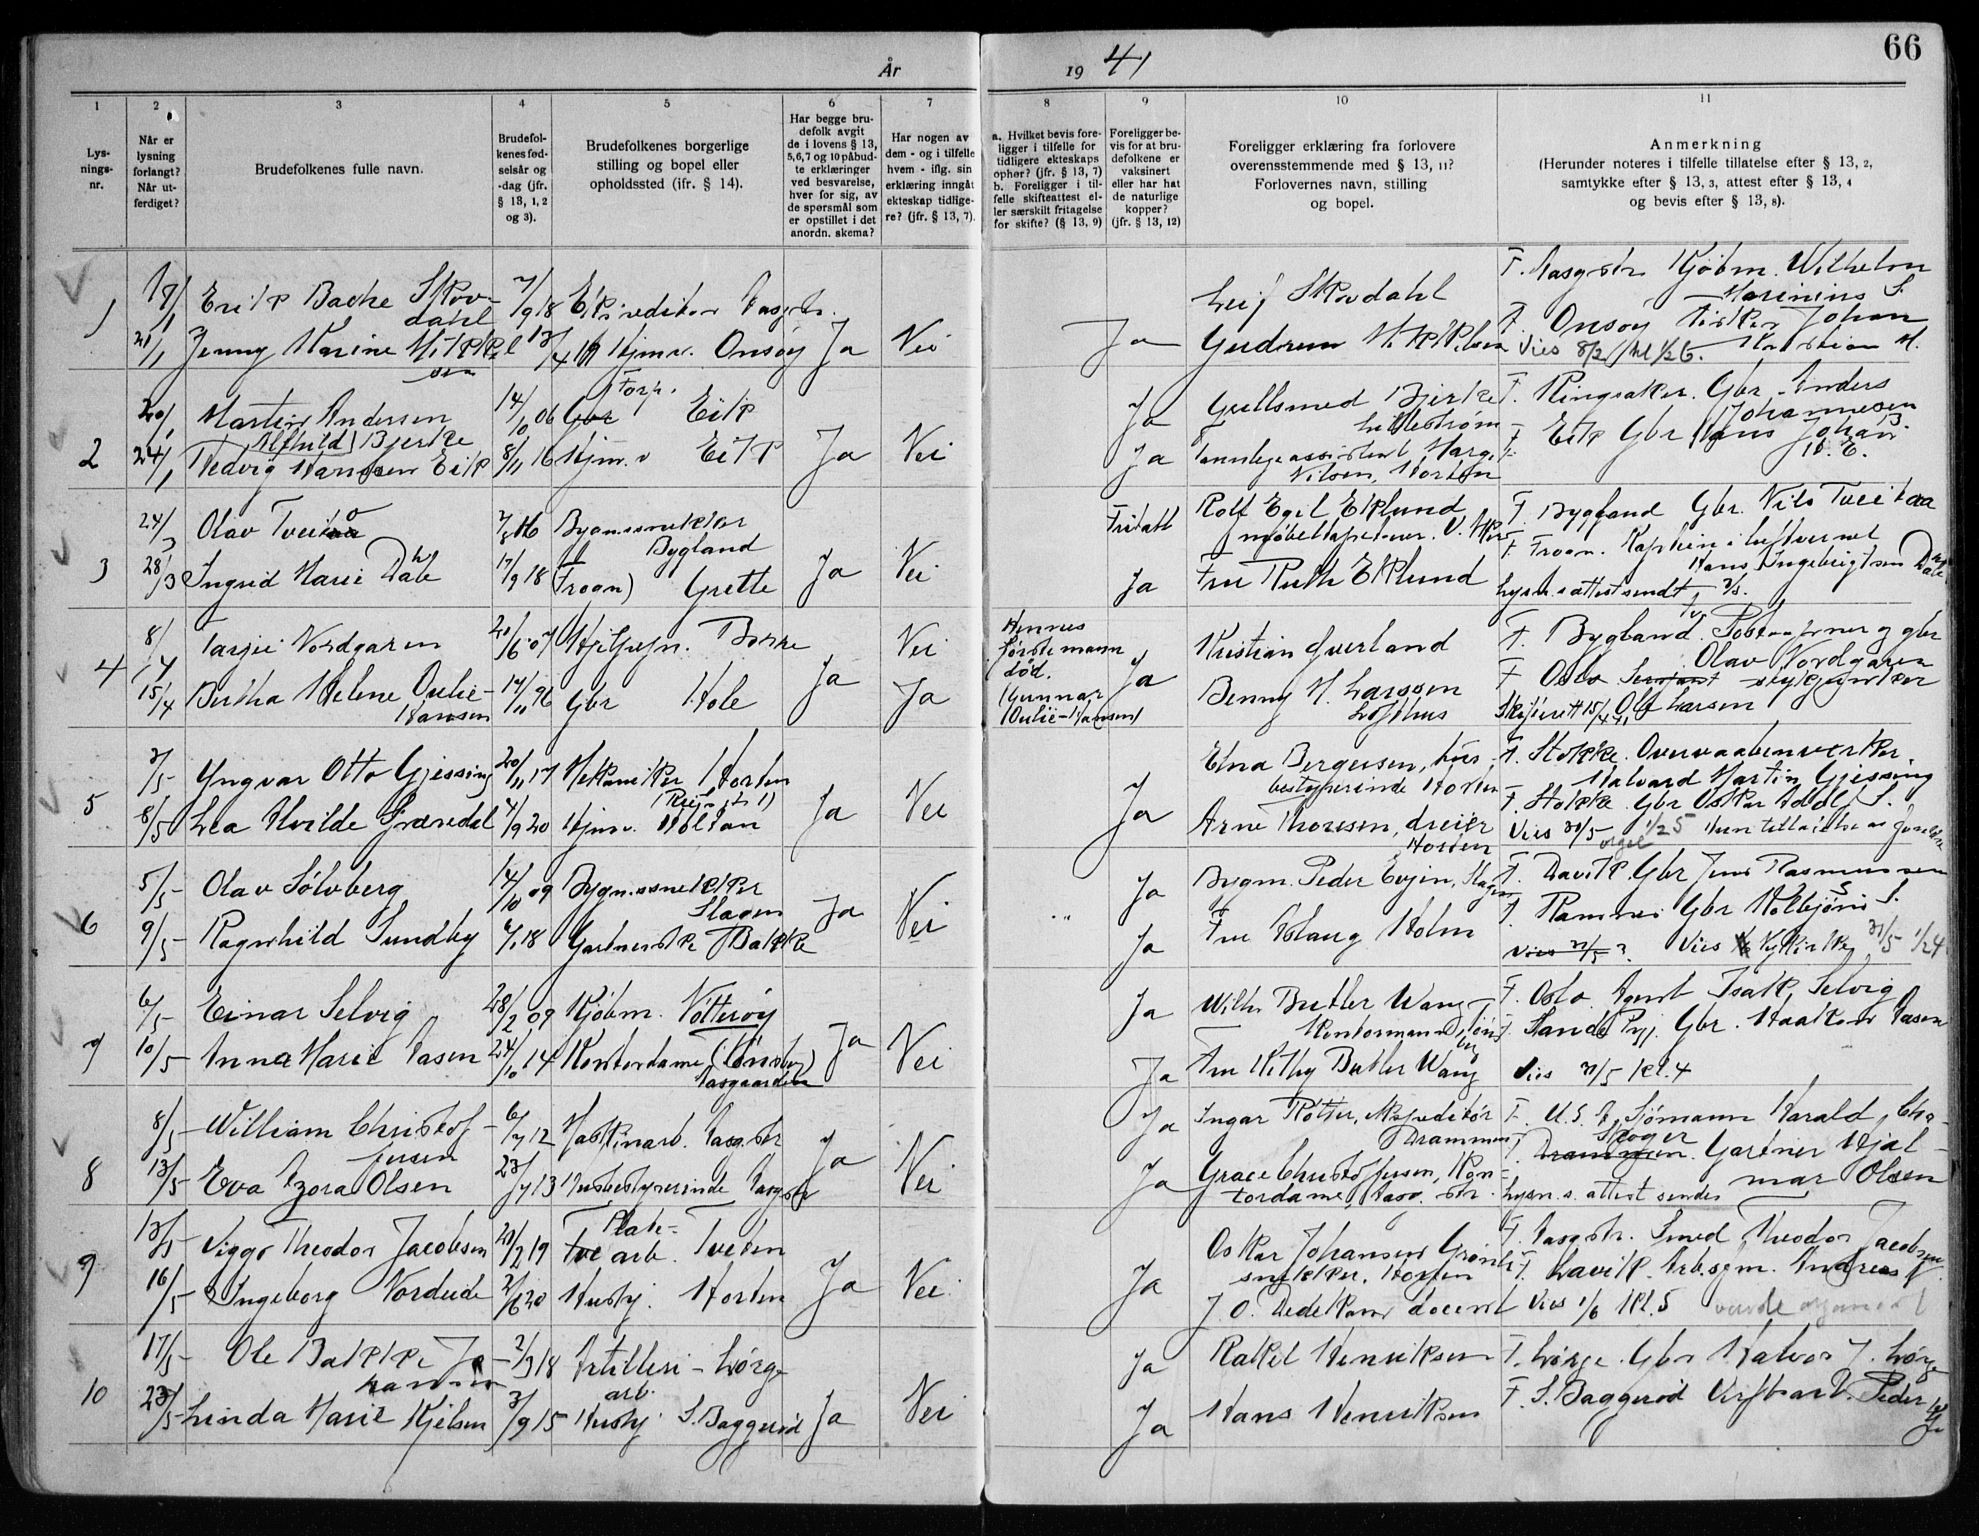 66
År 19 41
1 2 3 4 5 6 7 8 9 10 11
Lys-
nings-
nr.
Når er
lysning
forlangt?
Når ut-
ferdiget?
Brudefolkenes fulle navn.
Brudefol-
kenes fød-
selsår og
-dag (jfr.
§ 13, 1, 2
og 3).
Brudefolkenes borgerlige
stilling og bopel eller
opholdssted (ifr. § 14).
Har begge bru-
defolk avgit
de i lovens § 13,
5,6,7 og 10 påbud-
te erklæringer
ved besvarelse,
hver for sig, av
de spørsmål som
er opstillet i det
anordn. skema?
Har nogen av
dem - og i tilfelle
hvem - iflg. sin
erklæring inngåt
ekteskap tidlige-
re? (jfr. § 13, 7).
a. Hvilket bevis fore-
ligger i tilfelle for
tidligere ekteskaps
ophør? (jfr. § 13, 7)
b. Foreligger i til-
felle skifteattest el-
ler særskilt fritagelse
for skifte? (§ 13, 9)
Foreligger be-
vis for at bru-
defolkene er
vaksinert
eller har hat
de naturlige
kopper?
(jfr. § 13, 12)
Foreligger erklæring fra forlovere
overensstemmende med § 13, 11?
Forlovernes navn, stilling
og bopel.
Anmerkning
(Herunder noteres i tilfelle tillatelse efter § 13, 2,
samtykke efter § 13, 3, attest efter § 13, 4
og bevis efter § 13, 8).
1 Erik Bache Skov-
dahl
Leif Skovdahl
F. Aasgstr. Kjøbm. Wilhelm
Marinius S.
21/1 Jenny Marine Mikkel
sen
Hjmv. Onsøy Ja Nei
Ja Gudrun Mikkelsen
F. Onsøy Johan
Kristian M.
Vies 8/2 kl 1/2 6.
20/1 Martin Andersen
14/10 06 Gbr Eik
Ja Gullsmed Bjerke
Lillestrøm
F. Ringsaker. Gbr. Anders
Johannesen
B.
2 24/1 Hedvig Alfhild Bjerke Hansen Eik
8/11 16 Hjm.v Eik Ja Nei
Ja Tannlegeassistent Marg.
Nilsen, Horten
F. Eik Gbr Hans Johan
H. E.
24/3 Olav Tveitaa
Bygn.snekker
Bygland
Fritatt Rolf Egil Eklund
møbeltapetserer. V. Aker
F. Bygland Gbr. Nils Tveitaa
3 28/3 Ingrid Marie Dahl
17/9 18 Frogn) Grette Ja Nei
Ja Fru Ruth Eklund
F. Frogn. Kaptein i luftvernet
Hans Ingebrigtsen Dahl
Lysn.s attest sendt
8/4 Tarjei Nordgaren
20/6 07 Borre Nei
Hennes
første mann
død.
Kristian Gverland
F. Bygland. gbr
Olav Nordgaren
4 15/4 Bertha Helene Oulie-
Hansen
17/11 96 Gbr Hole Ja Ja
(Gunnar
Oulie-Hansen)
Ja Benny M. Larssen
Lofthus
F. Oslo
Skifterett 15/4 41 Olf Larsen
5 Yngvar Otto Gjessing
20/11 17 Mekaniker Horten
Edna Bergersen, hus-
bestyrerinde Horten
F. Stokke. Overvaabenverker
Halvard Martin Gjessing
8/5 Lea Alvilde Granedal
4/9 20 Hjmv. Holtan Ja Nei
Ja Arne Thoresen, dreier
Horten
F. Stokke Gbr Oskar Adolf S.
Vies 31/5 1/2 5
orgel
5/5 Olav Sølvberg
14/10 09 Bygn.snekker
Slagen
Ja Bygm. Peder Evjen, Slagen
F. Davik Gbr Jens Rasmussen
S.
6 9/5 Ragnhild Sundby
Gartnerske Bakke Ja Nei
Ja Fru Aslaug Holm
F. Ramnes Gbr S.
Vies 31/5 ? Vies Nykirke 31/5 1/2 4
6/5 Einar Selvig
28/2 09 Kjøbm. Nøtterøy
Ja Wilh. Butler Wang
Kontormann, Tøns-
berg
F. Oslo Agent Isak Selvig
7 10/5 Anna Marie Aasen
24/10 14 Kontordame (Tønsberg)
Aasgaarden
Ja Nei
Ja Fru Kitty Butler Wang
F. Sande Pgj. Gbr. Haakon Aasen
Vies 31/5 kl. 4
8/5 William Christof-
fersen
6/7 12 Maskinarb. Aasg.str
Ja Ingar Flotter, ekspeditør
Drammen
F. U.S.A. Sjømann Harald Chr-
8 13/5 Eva Zora Olsen
23/7 13 Husbestyrerinde Aasgstr
Ja Nei
Ja Grace Christoffersen, kon-
tordame, Aasg. str.
F. Drammen Skoger Gartner Hjal-
mar Olsen
Lysn.s. attest sendes
13/5 Viggo Theodor Jacobsen
20/2 19 Plate-
arb. Tveten
Oskar Johansen Grønli
snekker, Horten
F. Aasgstr. Smed Theodor Jacobsen
9 16/5 Ingeborg Nordeide
2/6 20 Hushj. Horten Ja Nei
Ja J. O. Dedekam docent
F. Lavik. Arb.sgm. Andreas N.
Vies 1/6 Kl. 5
17/5 Ole Bakke Jo-
hansen
2/3 18 Artilleri-
arb. Lørge
Ja Rakel Henriksen
F. Lørge. Gbr Halvor J. Lørge
10 23/5 Linda Marie Kjelsen
3/9 15 Hushj S. Baggerød Ja Nei
Ja Hans Henriksen
F. S. Baggerød Verftsarb. Peder